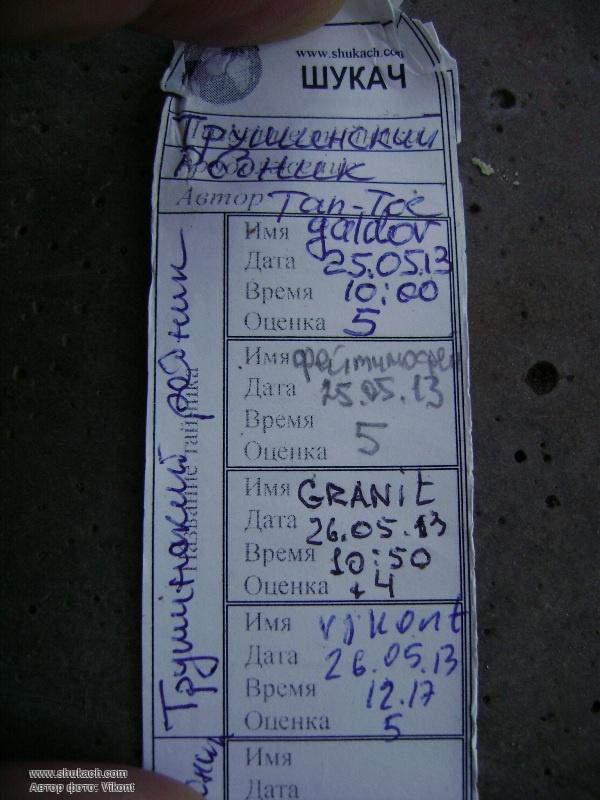 www.shukach.com
ШУКАЧ
Трушенский
Автор Тап-Toe
Имя galdov
Дата 25.05.13
Время 10:00
Оценка 5
Имя
Дата 25.05.13
Время
Оценка 5
Имя GRANit
Дата 26.05.13
Время 10:50
Оценка +4
Имя vikont
Дата 26.05.13
Время 12.17
Оценка 5
Имя
Дата
Название тайника
www.shukach.com
Автор фото: Vikont